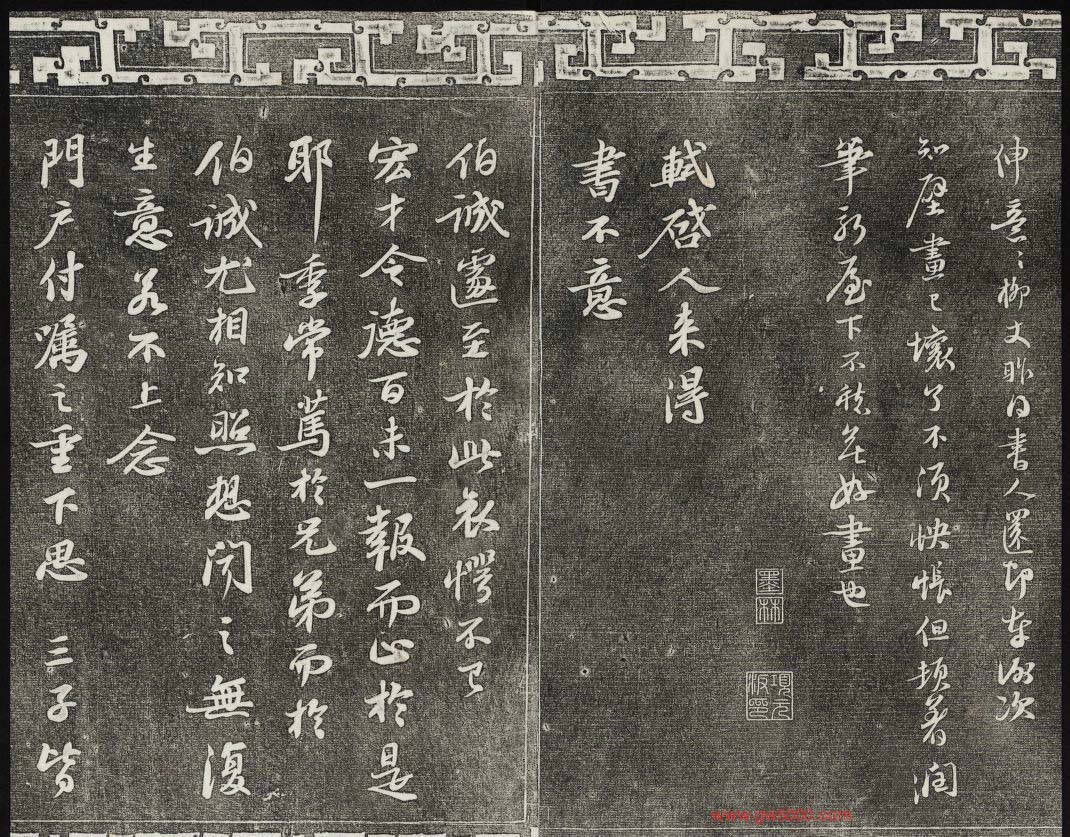 伸意意柳丈昨日書人還即奉謝次
知壁畫已壞了不須怏悵但頓著潤
筆新屋下不愁無好畫也
墨林
項元汴印
軾啓人来得
書不意
伯誠遽至於此哀愕不已
宏才令德百未一報而止於是
耶季常篤於兄弟而於
伯誠尤相知照想聞之無復
生意若不上念
門户付囑之重下思三子皆